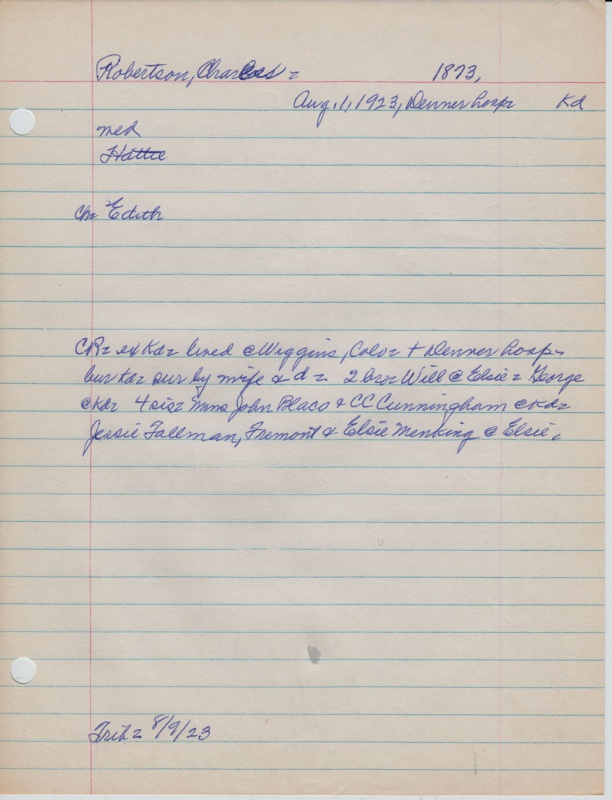 Robertson, Charles = 1873,
Aug. 1, 1923, Denver hosp= Kd
med
Hattie
ch= Edith
CR= ex Kd= lived @ Wiggins, Colo= + Denver hosp=
bur Kd= sur by wife & d= 2 bro= Will @ Elsie= George
@ Kd= 4 sis= Mmes John Placo & CC Cunningham @ Kd=
Jessie Tallman, Fremont & Elsie Menking @ Elsie=
Trib= 8/9/23